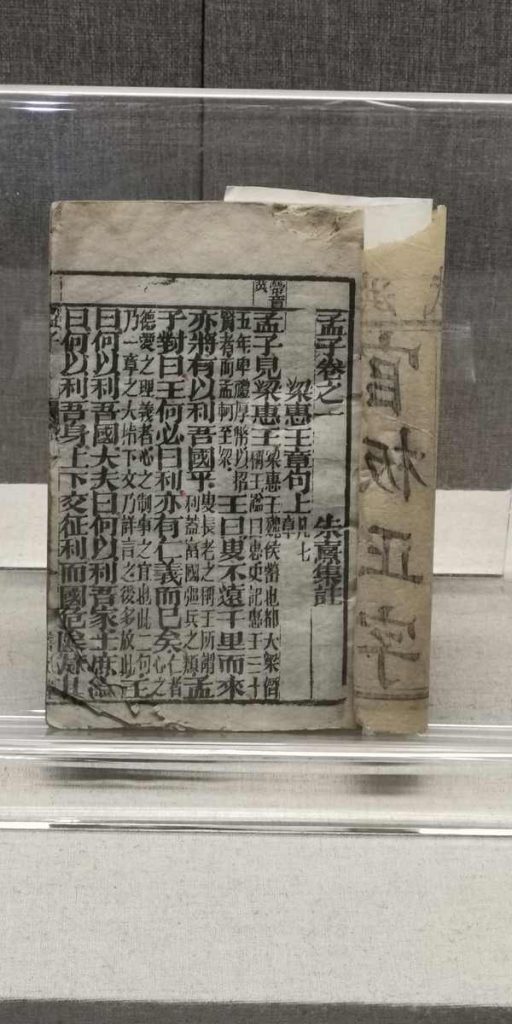 官板正字
罃音英
孟子卷之一
梁惠王章句上 凡七章 朱熹集註
孟子見梁惠王 梁惠王魏侯罃也都大梁僭稱王諡曰惠史記惠王三十
五年卑禮厚幣以招賢者而孟軻至梁 王曰叟不遠千里而來
亦將有以利吾國乎 叟長老之稱王所謂利蓋富國彊兵之類 孟
子對曰王何必曰利亦有仁義而已矣 仁者心之
德愛之理義者心之制事之宜也此二句乃一章之大指下文乃詳言之後多放此 王
曰何以利吾國大夫曰何以利吾家士庶人
曰何以利吾身上下交征利而國危矣